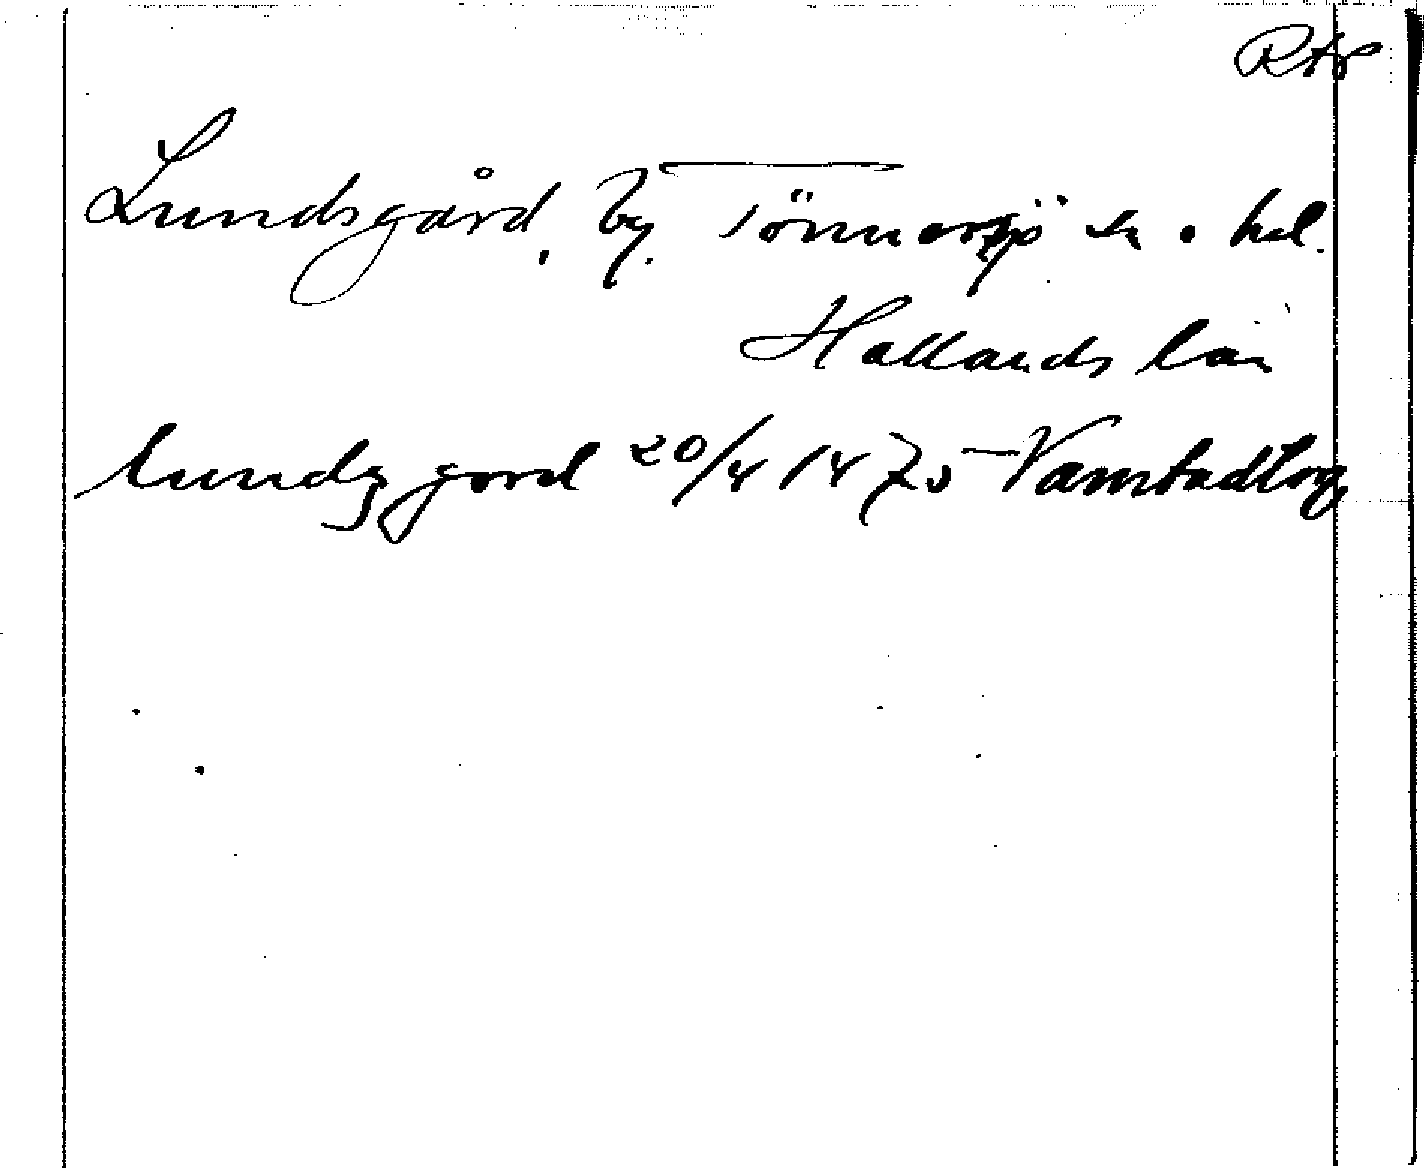 Rtp
Lundsgård, by. Tönnersjö sn o hd.
Hallands län
lundzgord 20/4 1475 Vamstadtorg